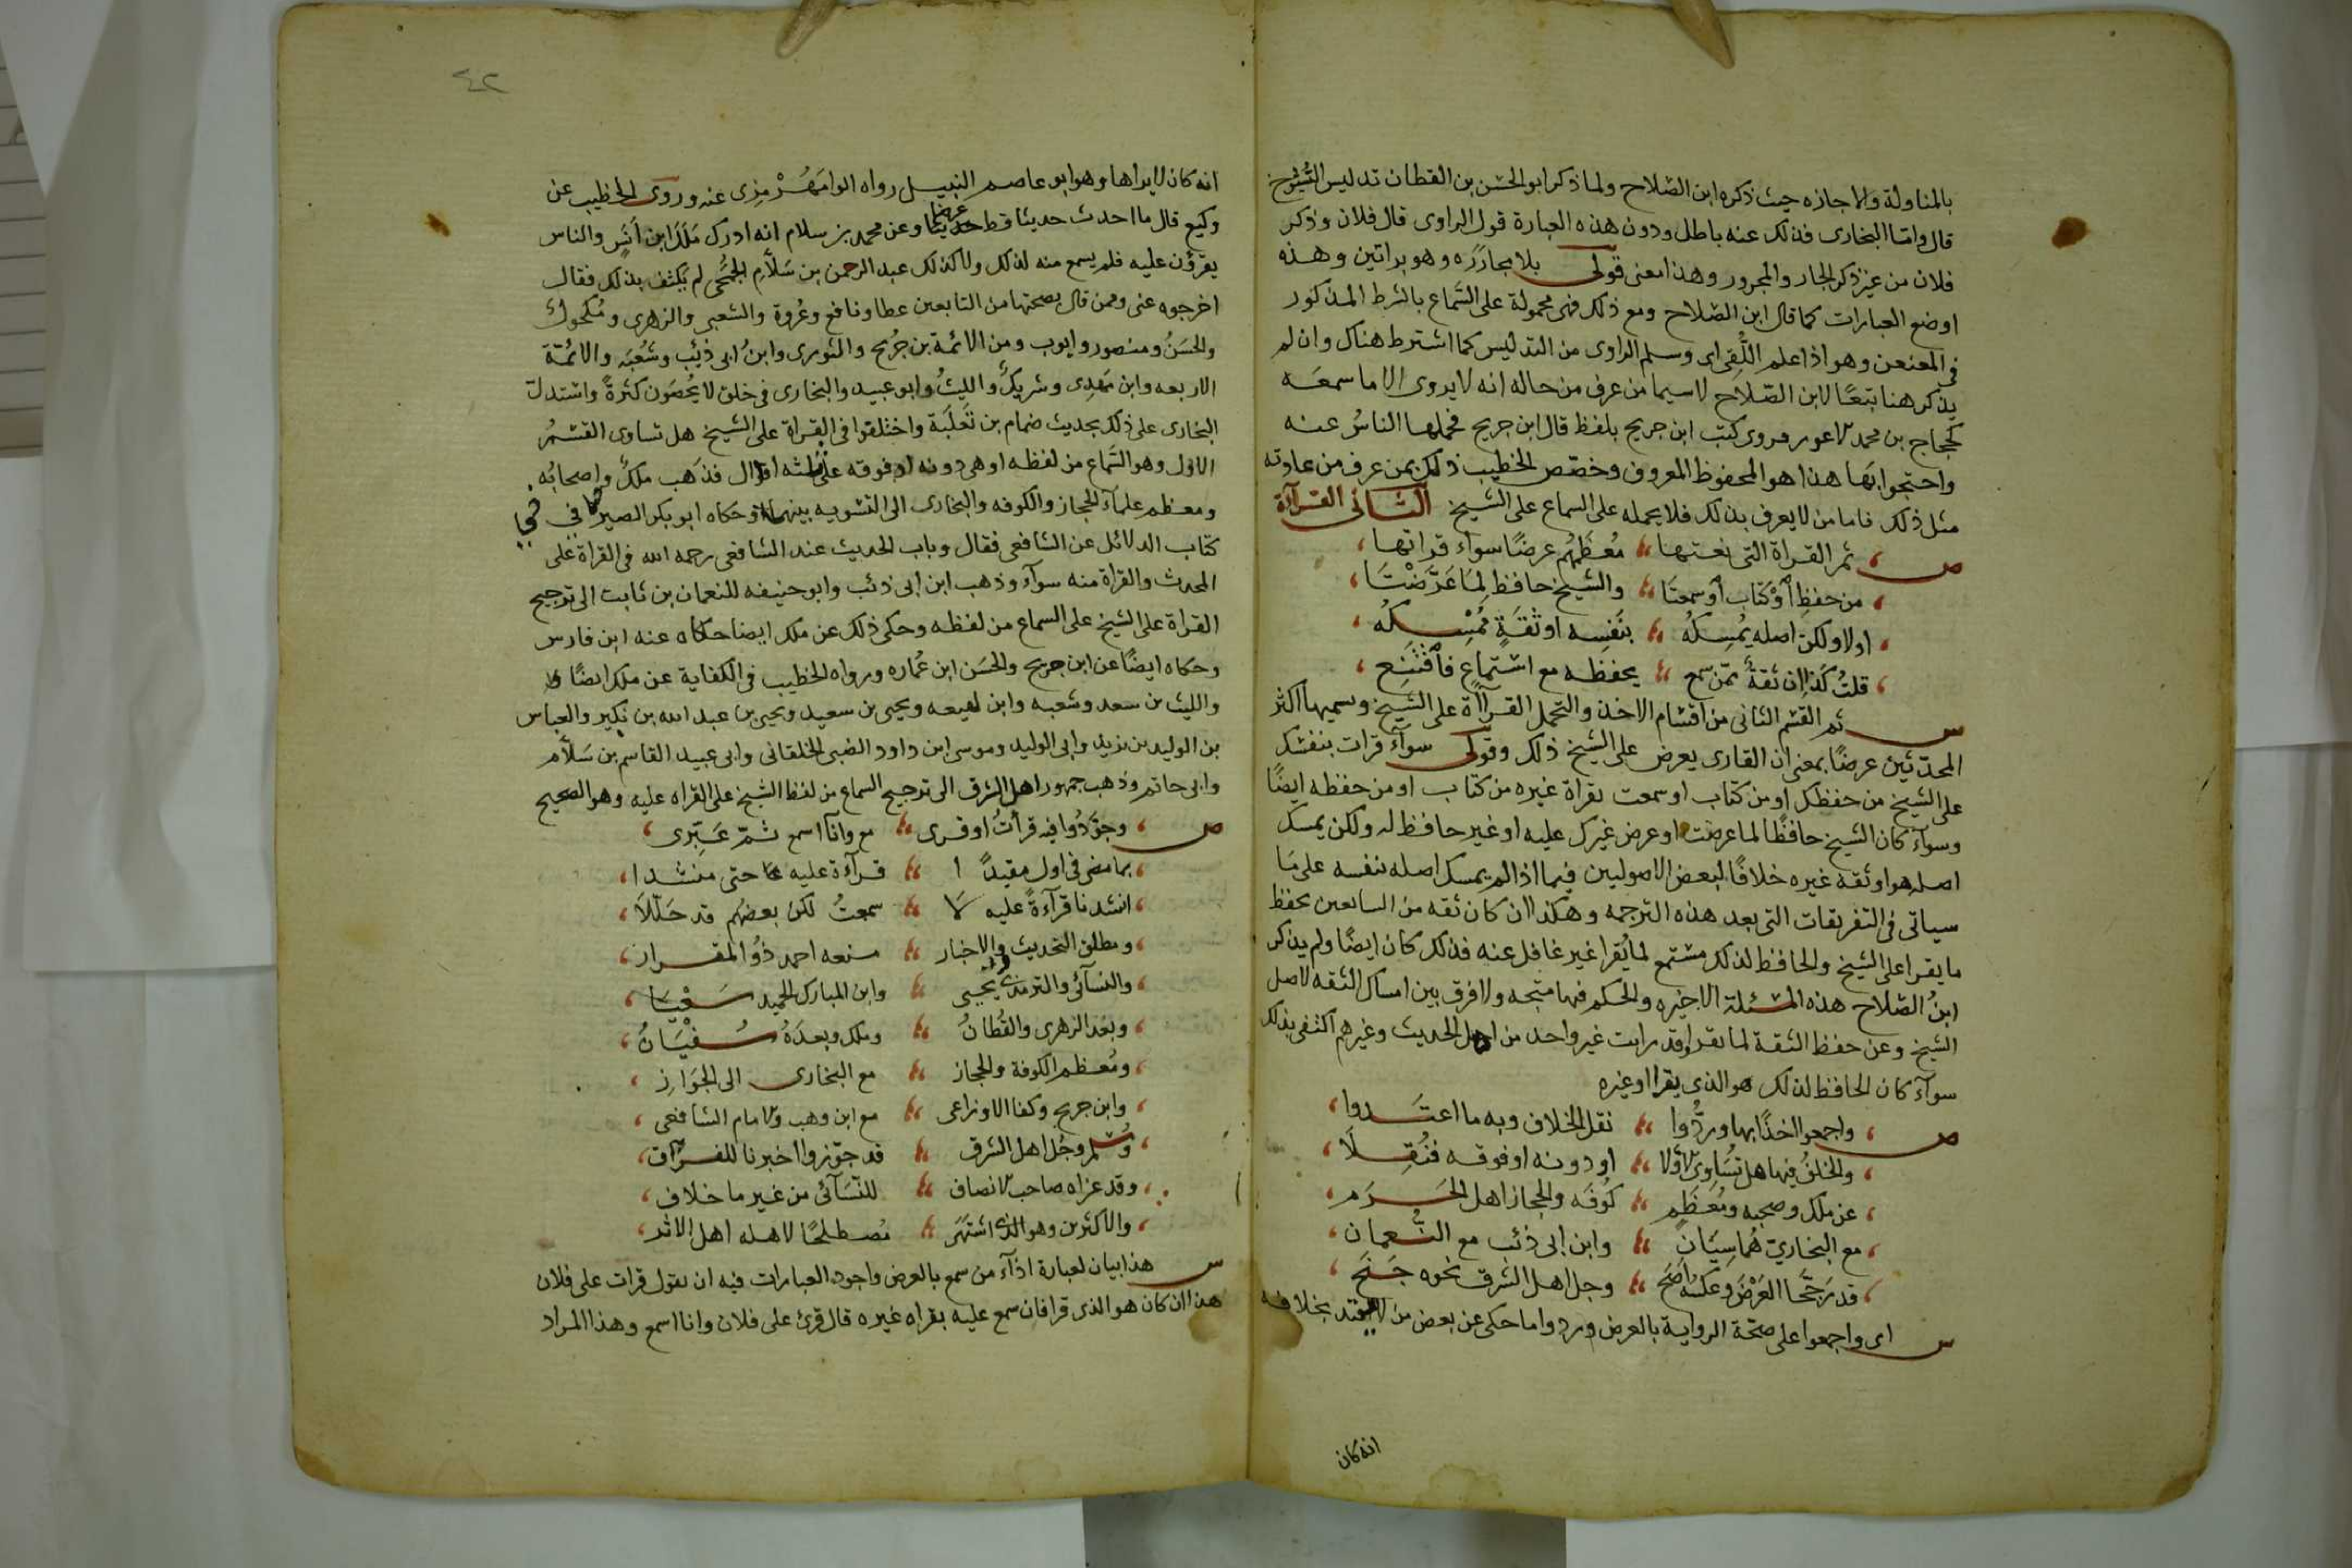 بالمناولة والاجازه حيث ذكره ابن الصلاح ولما ذكر ابو الحسن بن القطان تدليس الشيوخ
قال واما البخارى فذلك عنه باطل ودون هذه العبارة قول الراوى قال فلان وذكر
فلان من غير ذكر الجار والمجرور وهذا معنى قولى بلا مجاررَه وهو براتين وهذه
اوضع العبارات كما قال ابن الصلاح ومع ذلك فهى محمولة على السماع بالشرط المذكور
فى المعنعن وهو اذا علم اللُّقى اى وسلم الراوى من التدليس كما اشترط هناك وان لم
يذكر هنا تبعًا لابن الصّلاح لاسيما من عرف من حاله انه لا يروى الا ما سمعَه
كحجاج بن محمد الاعور فروى كتب ابن جريج بلفظ قال ابن جريج فحملها الناسُ عنه
واحتجوا بها هذا هو المحفوظ المعروف وخصّص الخطيب ذلك بمن عرف من عادته
مثل ذلك فاما من لا يعرف بذلك فلا يحمله على السماع على الشيخ الثانى القرآءة
ص ثم القراة التى نعتها معُظَمُهُم عرضًا سواء قراتها
من حفظِ اَوْ كتَاب اَو سمعتَا والشيخ حافظ لِمَا عَرَضْتَا
اولا ولكن اصله يُمسِكُه بنَفسِه او ثقَةٍ مُمْسِكُه
قلتُ كذا ان ثقةٌ ممّن سمع يحفظه مع اسْتماعٍ فاقْتَنِع
س ثم القسْم الثانى من اقسَام الاخذ والتحمل القرآاة على الشيخ وسميها اكثر
المحدّثين عرضًا بمعنى ان القارى يعرض على الشيخ ذلك وقولى سوآء قرات بنفسك
على الشيخ من حفظك او من كتاب او سمعت بقراة غيره من كتاب او من حفظه ايضًا
وسوآء كان الشيخ حافظًا لما عرضت او عرض غيرك عليه او غير حافظ له ولكن يمسك
اصله هو او ثقة غيره خلافًا لبعض الاصوليين فيما اذا لم يمسك اصله بنفسه على مَا
سياتى فى التفريقات التى بعد هذه الترجمه وهكذا ان كان ثقه من السامعين يحفظ
ما يقرا على الشيخ والحافظ لذلك مستمع لما يُقرا غير غافل عنه فذلك كان ايضًا ولم يذكر
ابنُ الصّلاح هذه المسئلة الاخيره والحكم فيها متجه ولا فرق بين امساك الثقه لاصل
الشيخ وعن حفظ الثقة لما يقرا وقد رايت غير واحد من اهل الحديث وغيرهم اكتفى بذلك
سوآء كان الحافظ لذلك هو الذى يقرا او غيره
ص واجمعوا اخذًا بها وردُّوا نقل الخلاف وبه ما اعتَدوا
والخلفُ فيها هل تُسَاوى الاولا او دونه او فوقه فنُقِلَا
عن ملك وصحبه ومُعَظَمِ كُوفَه والحجاز اهل الحَرَم
مع البخارىّ هُما سِيّانِ وابن ابى ذئب مع النُّعمان
قد رَجَّحَا العَرْضَ وعكسُه اَصَح وجل اهل الشرق نحوه جَنَح
س اى واجمعوا على صحّة الرواية بالعرض وردوا ما حكى عن بعض من لا يعتد بخلافه
انه كان
٤٢
انه كان لا يراها وهو ابو عاصم النبيل رواه الرامَهُرْمزِى عنه وروى الخطيب عن
وكيع قال ما احدث حديثا قط عرضا وعن محمد بن سلام انه ادرك ملكَ ابن اَنَس والناس
يقرؤن عليه فلم يسمع منه لذلك وكذلك عبد الرحمن بن سَلّام الجُمَحى لم يكتف بذلك فقال
اخرجوه عنى وممن قال بصحتها من التابعين عطا ونافع وعُروة والشعبى والزهرى ومُكحول
والحسَنُ ومنصور وايوب ومن الائمة بن جُريج والثورى وابنُ ابى ذئب وشعُبَه والائمّة
الاربعه وابن مَهدِى وشريكٌ والليثُ وابو عبيد والبخارى فى خلق لا يُحصَون كثرةً واستدل
البخارى على ذلك بحديث ضمام بن ثَعلبَة واختلفوا فى القراة على الشيخ هل تساوى القسْمُ
الاوّل وهو السَّماع من لفظه او هى دونه او فوقه على ثلثه اقوال فذهَب ملكٌ واصحابُه
ومعظم علماء الحجاز والكوفه والبخارى الى التسويه بينهما وحكاه ابو بكر الصيرفى فى
كتاب الدلائل عن الشافعى فقال وباب الحديث عند الشافعى رحمه الله فى القراة على
المحدث والقراة منه سوآء وذهب ابن ابى ذئب وابو حنيفه النعمان بن ثابت الى ترجيح
القراة على الشيخ على السماع من لفظه وحكى ذلك عن ملك ايضا حكاه عنه ابن فارس
وحكاه ايضًا عن ابن جريج والحسَن ابن عُماره ورواه الخطيب فى الكفاية عن ملك ايضًا
والليث بن سعد وشعبه وابن لهيعه ويحيى بن سعيد ويحيى بن عبد الله بن بُكير والعباس
بن الوليد بن يزيد وابى الوليد وموسى ابن داود الضبى الخلقانى وابى عبيد القاسم بن سَلّام
وابى حاتم وذهب جمهور اهل الشرق الى ترجيح السماع من لفظ الشيخ على القراه عليه وهو الصحيح
ص وجوّدُوا فيه قرأتُ او قرى مع وانا اسمع ثمّ عَبِّرى
بما مضى فى اول مقيدًا قرآءة عليه حتى منشدا
انشدنا قرآءةً عليه لا سمعتُ لكن بعضهم قد حَلّلَا
ومطلق التحديث والاخبار منعه احمد ذُو المقدار
والنسآئى والتميمى يحيى وابن المبارك الحميد سَعْيَا
وبعْد الزهرى والقَطانُ وملك وبعدَهُ سُفْيَانُ
ومُعظم الكوفة والحجاز مع البخارى الى الجوَازِ
وابن جريج وكذا الاوزاعى مع ابن وهب والامام الشافعى
ومُسْلم وجُل اهل الشرق قد جوّزوا اخبرنا للفرْق
وقد عزاه صاحب الانصاف للنّسَآئى من غير ما خلاف
والاكثرين وهو الذى اشتَهَر مُصطلحًا لاهله اهل الاثر
س هذا بيان لعبارة ادآء من سمع بالعرض واجود العبارات فيه ان يقول قرات على فلان
هذا ان كان هو الذى قرا فان سمع عليه بقراه غيره قال قرئ على فلان وانا اسمع وهذا المراد